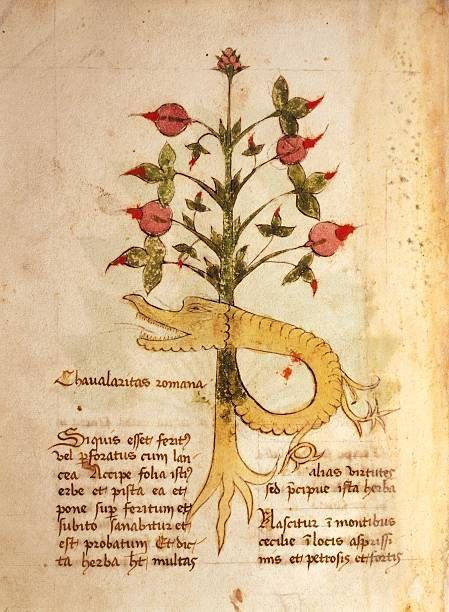 Chaualaritas romana
Siquis esset ferit9
vel pforatus cum lan-
cea Accipe folia isti9
erbe et pista ea et
pone sup feritum et
subito sanabitur et
est probatum Et dic-
ta herba ht multas
alias virtutes
sed pcipue ista herba
Nascitur i montibus
cecibe i locis asprissi
mis et petrosis et fortis